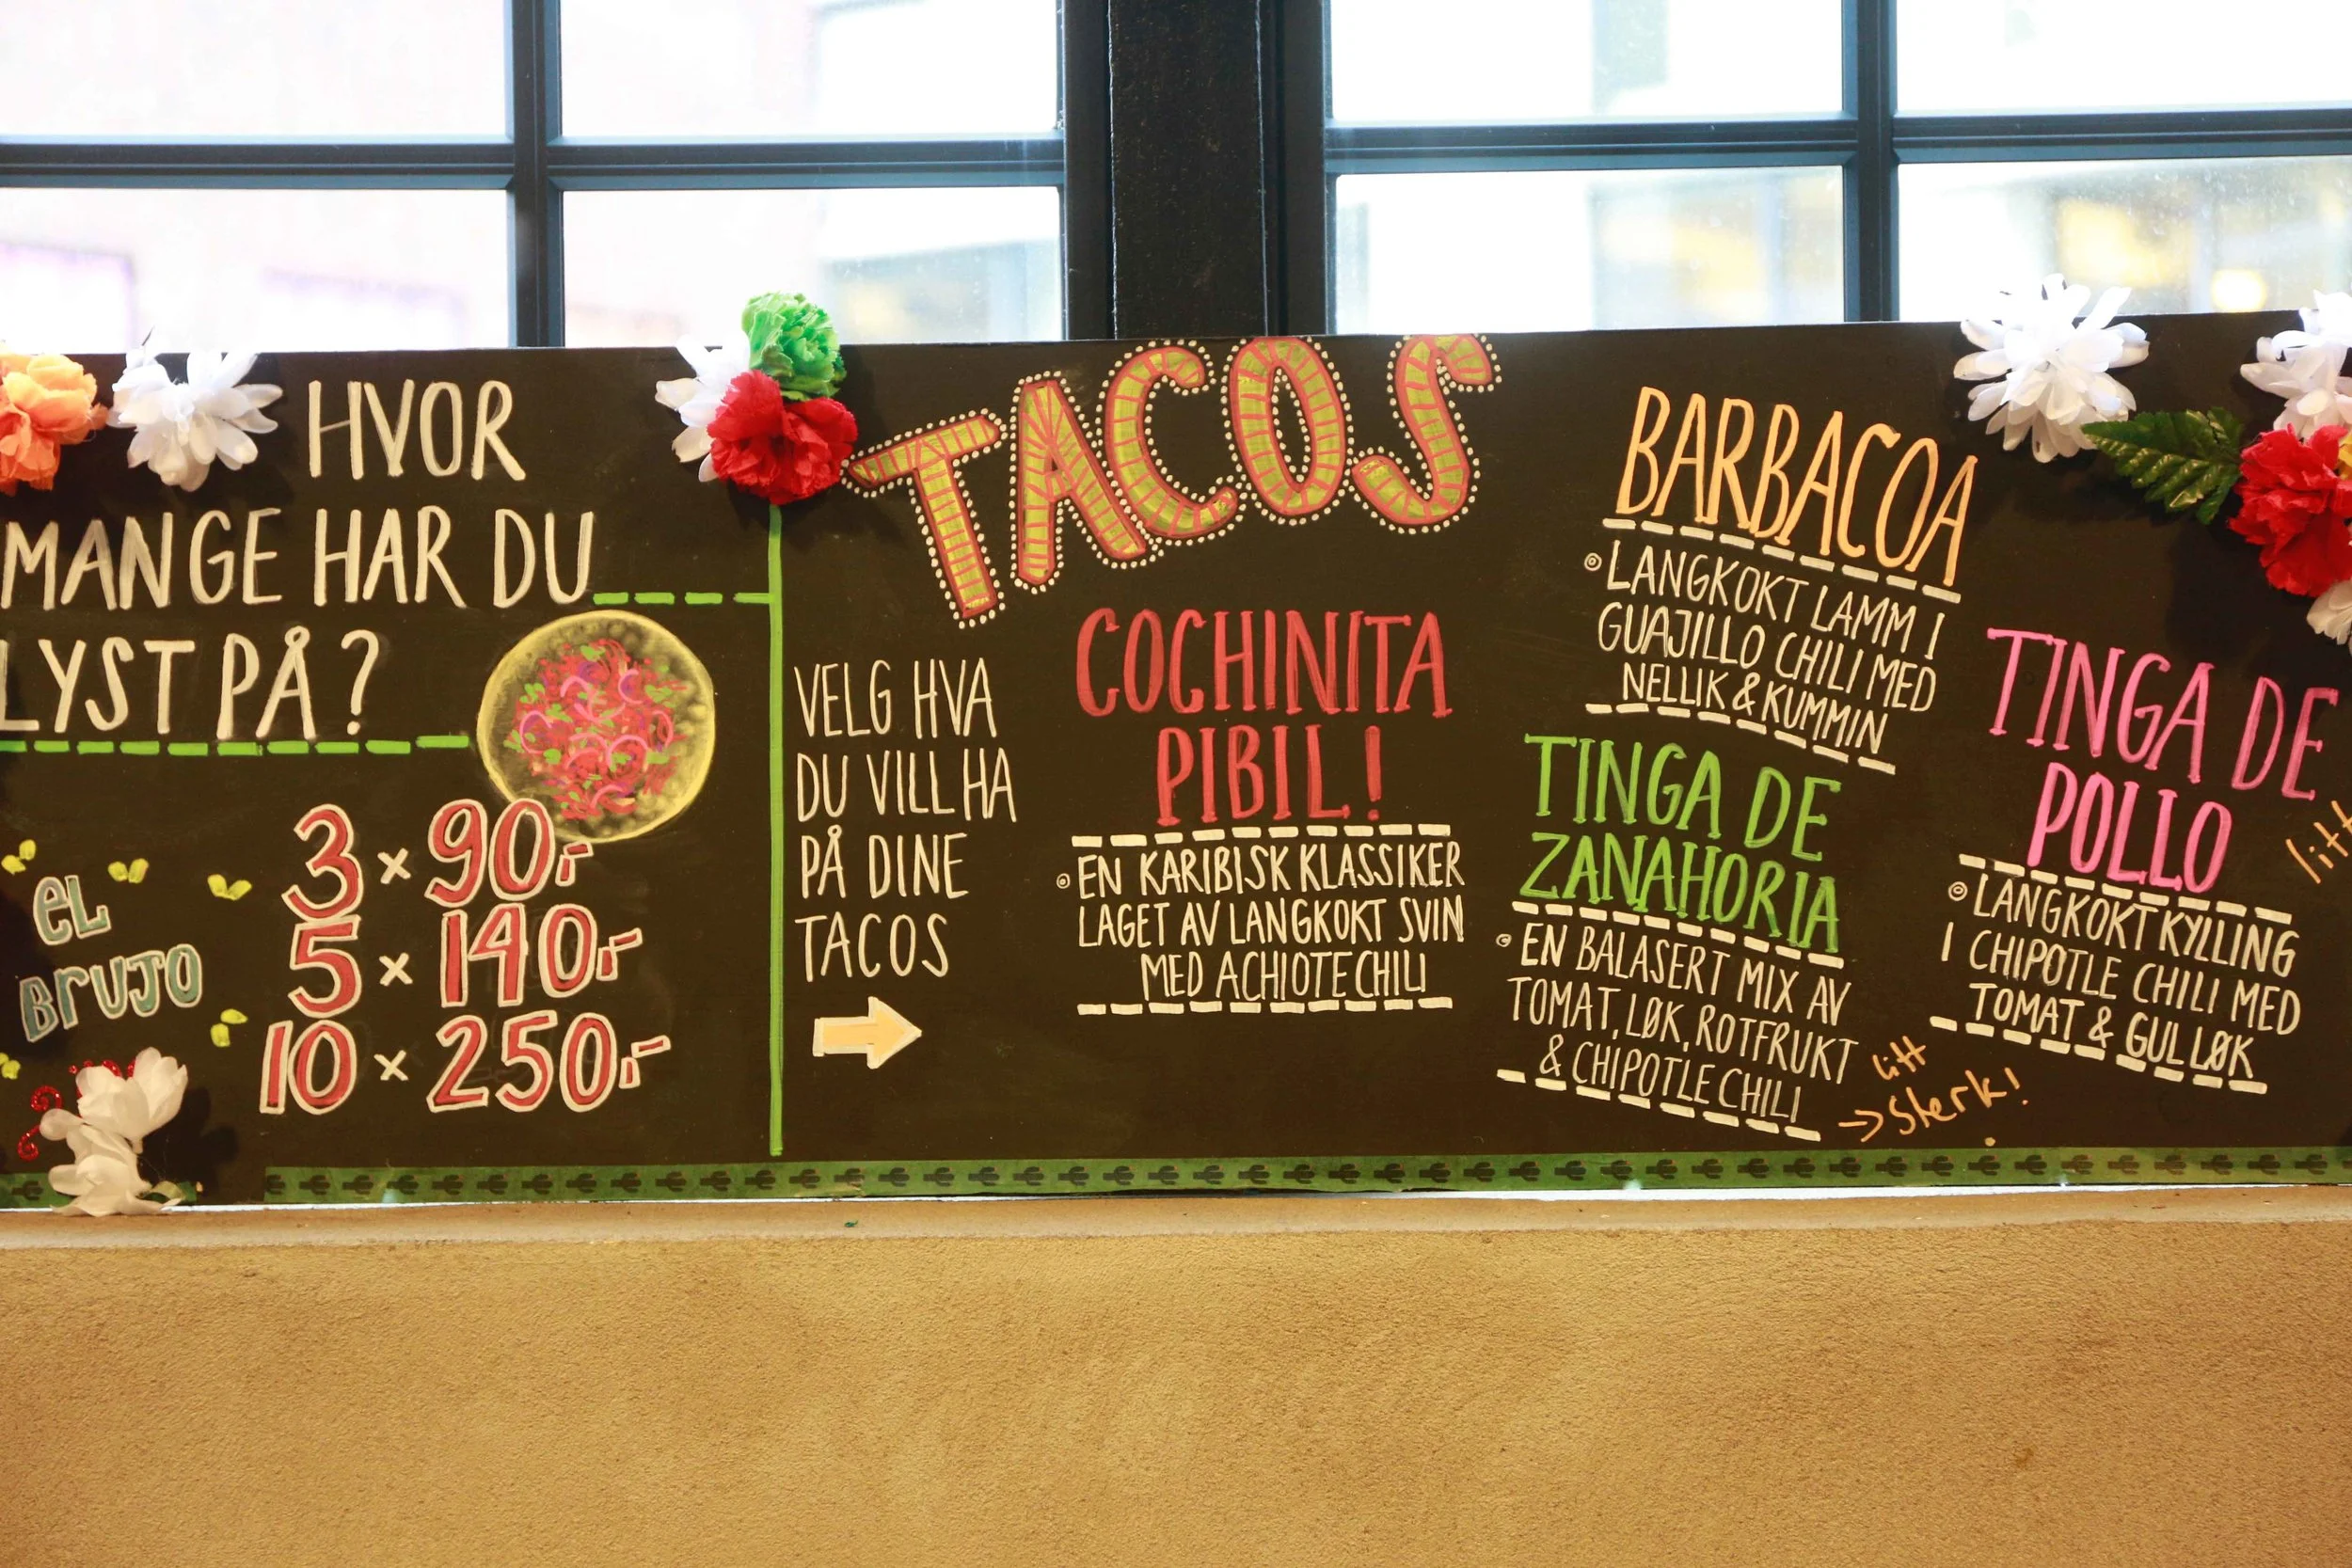 HVOR
MANGE HAR DU
LYST PÅ?
EL
BRUJO
3 x 90,-
5 x 140,-
10 x 250,-
VELG HVA
DU VILL HA
PÅ DINE
TACOS
TACOS
COCHINITA
PIBIL!
EN KARIBISK KLASSIKER
LAGET AV LANGKOKT SVIN
MED ACHIOTE CHILI
BARBACOA
LANGKOKT LAMM I
GUAJILLO CHILI MED
NELLIK & KUMMIN
TINGA DE
ZANAHORIA
EN BALASERT MIX AV
TOMAT, LØK, ROTFRUKT
& CHIPOTLE CHILI
litt
→ sterk!
TINGA DE
POLLO
LANGKOKT KYLLING
I CHIPOTLE CHILI MED
TOMAT & GUL LØK
litt